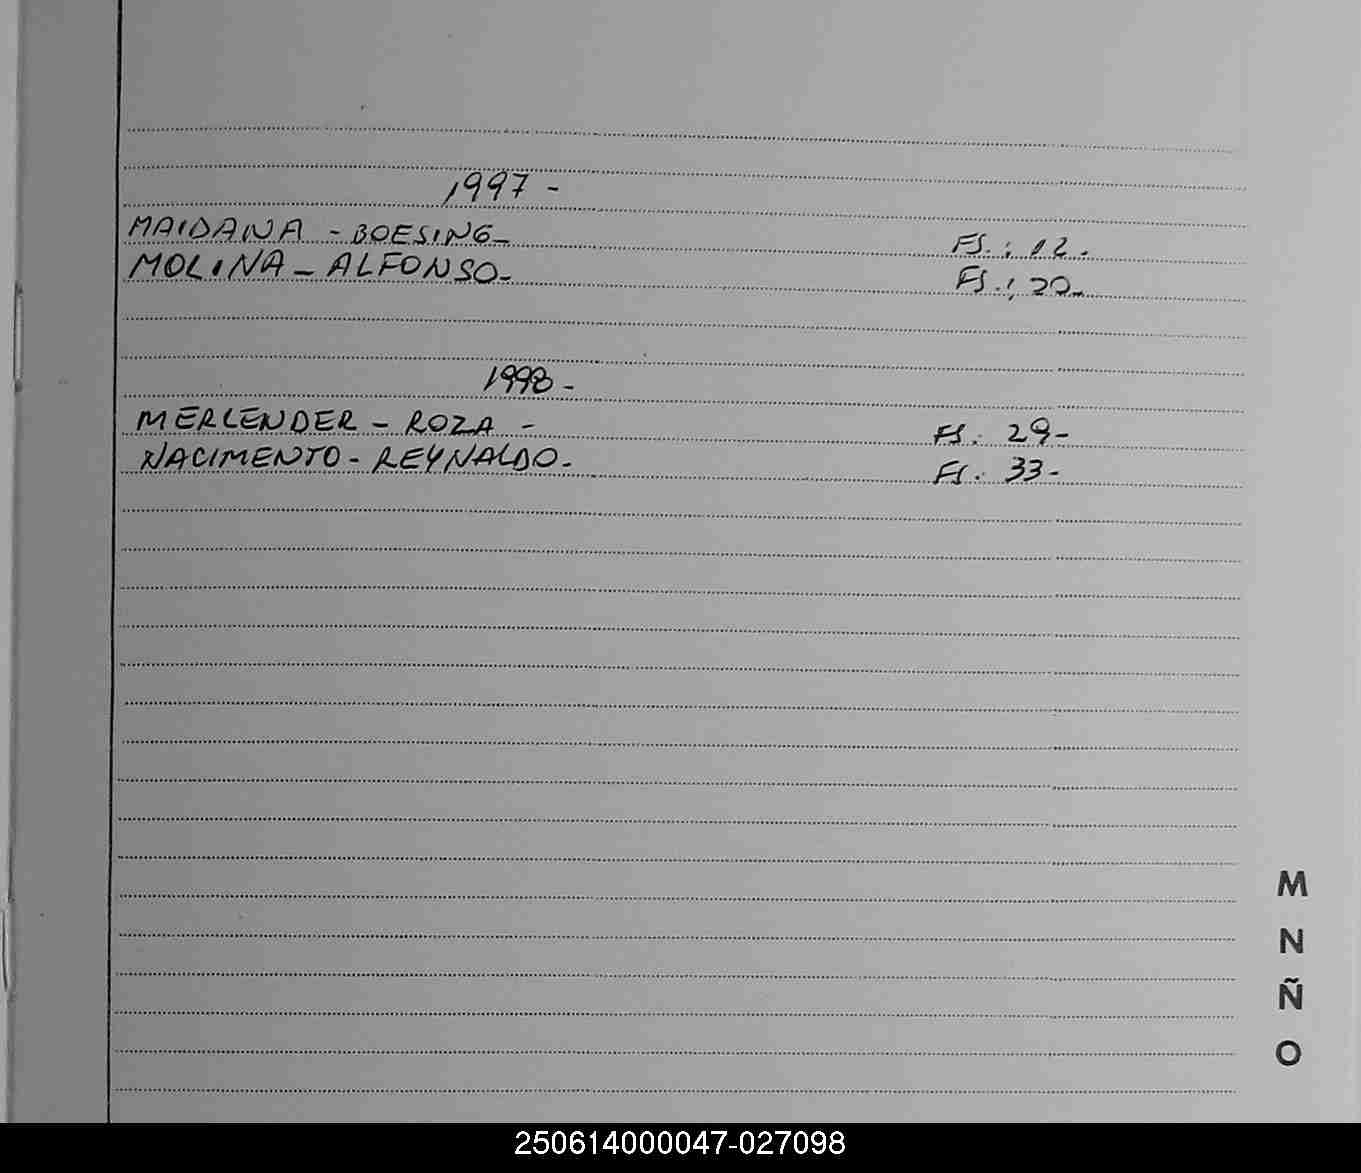 1997 -
MAIDANA - BOESING - FS.: 12.
MOLINA - ALFONSO - FS.: 20 -
1998 -
MERLENDER - ROZA - FS. 29 -
NACIMENTO - REYNALDO - FS. 33 -
M
N
Ñ
O
250614000047-027098